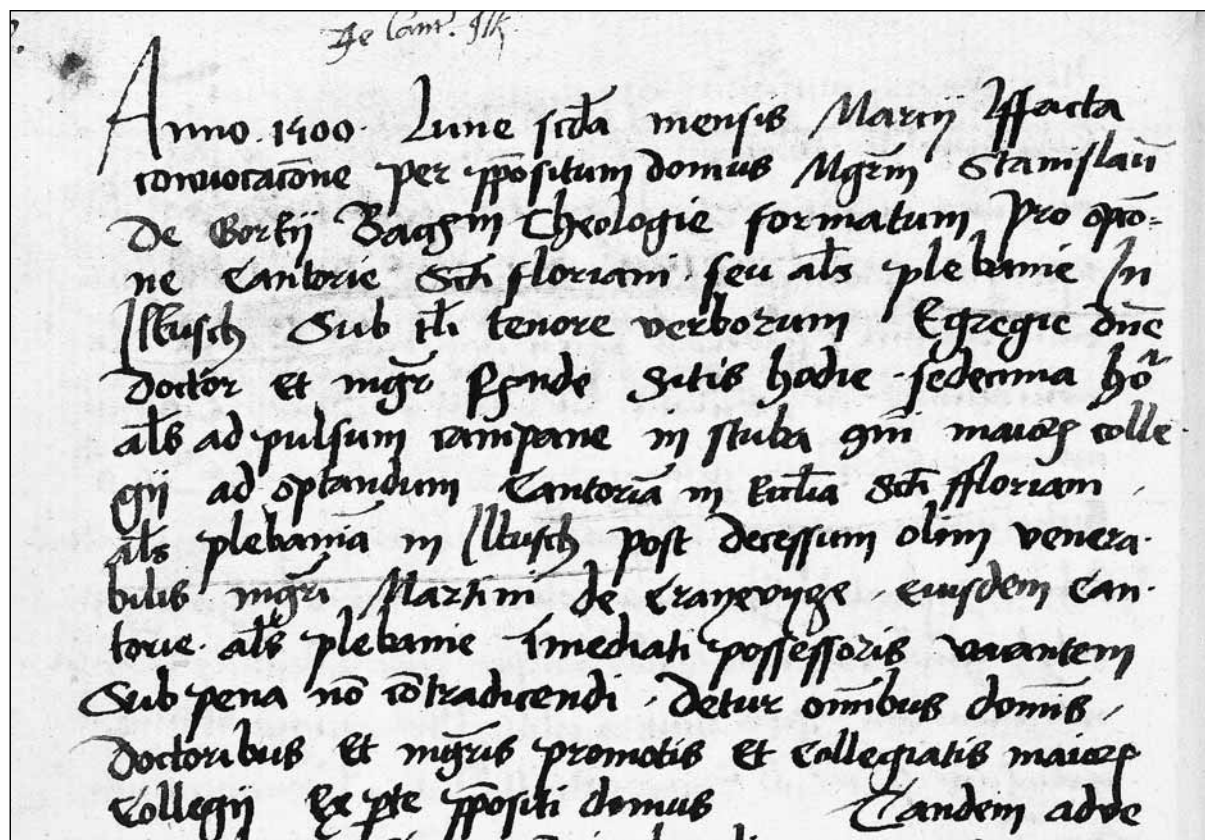 De Cant. Ilk.
Anno .1500. Lune scďa mensis Marcij Iffacta
conuocacōne per ꝓpositum domus Mgrm̄ Stanislaū
De Gorkij Bacm Theologie formatum pro opcō=
ne Cantorie Scti floriani seu als plebanie In
Ilkusch Sub tli tenore verborum Egregie dn̄e
doctor et mgr̄ Sitis hodie sedecima ho
als ad pulsum campane in stuba maioꝝ colle
gij ad optandum Cantoriā in Eccl̄ia Scti ffloriani
als plebaniā in Ilkusch post decessum olim venera
bilis mgr̄i Martini de eiusdem Can
torie als plebanie īmediati possessoris vacantem
Sub pena nō cōtradicendi . Detur om̄ibus domīs
Doctoribus et mgr̄is promotis et Collegiatis maioꝝ
Collegij Ex ꝑte ꝓpositi domus Tandem adue